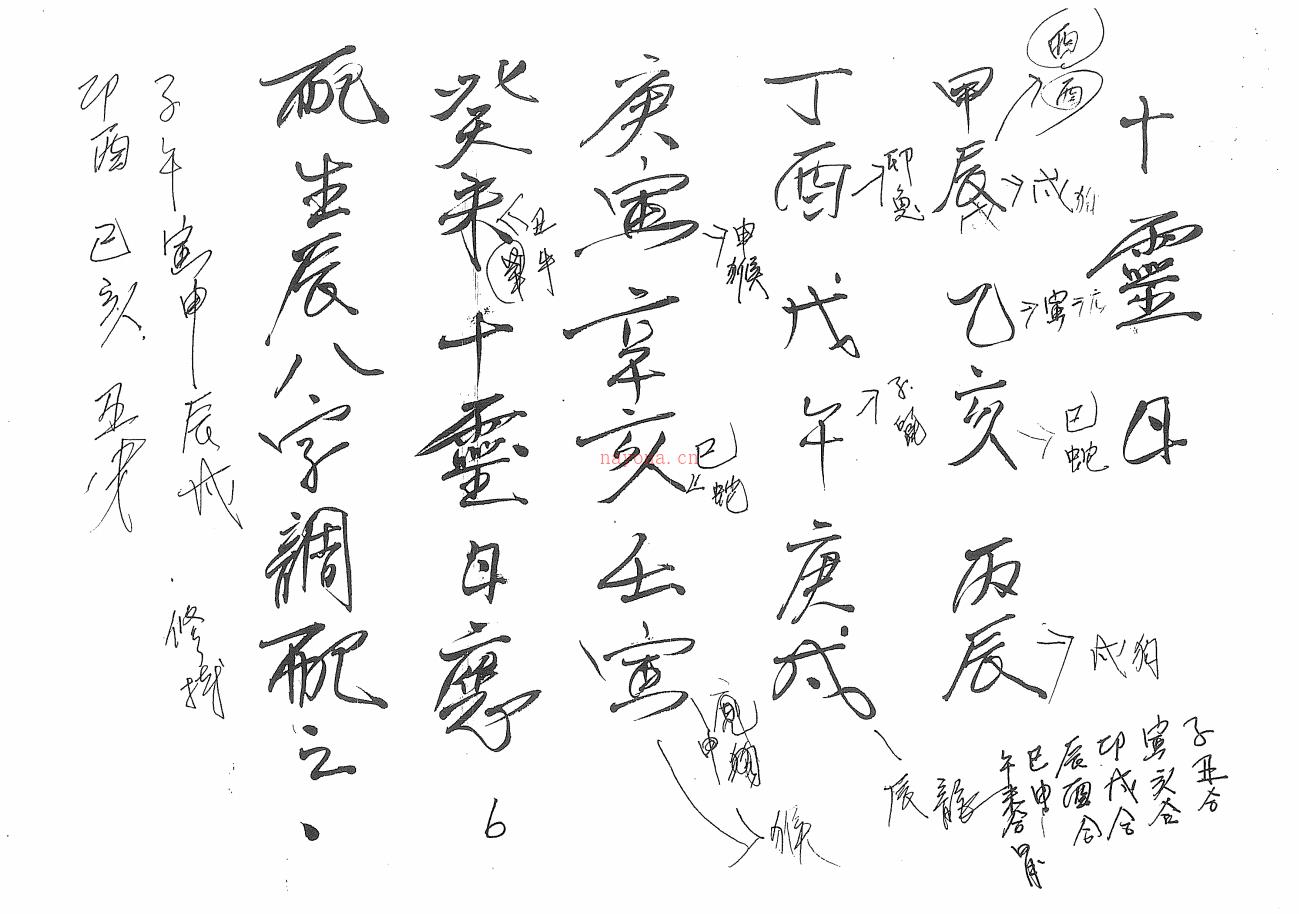 十靈日
甲辰 乙亥 丙辰
丁酉 戊午 庚戌
庚寅 辛亥 壬寅
癸未 十靈日應
配生辰八字調配之.
酉
酉
戌狗
寅
巳蛇
戌狗
卯兔
子
辰龍
申猴
巳蛇
申
猴
丑牛
6
子丑合
寅亥合
卯戌合
辰酉合
巳申
午未合
子午寅申辰戌
卯酉 巳亥 丑未
nayona.cn